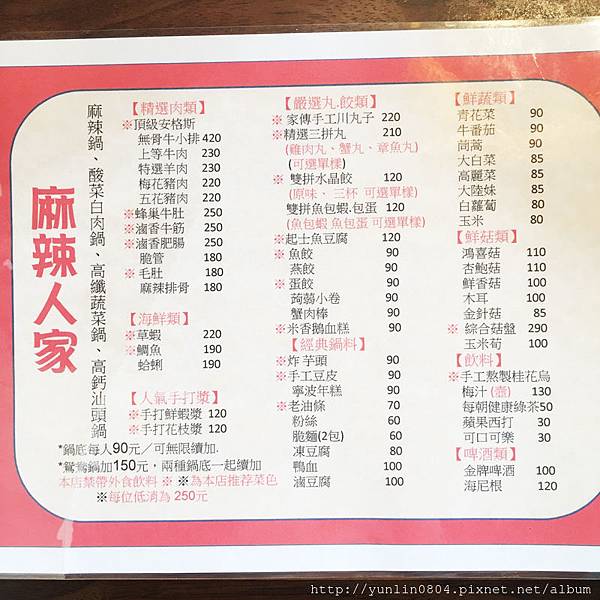 麻辣人家
麻辣鍋、酸菜白肉鍋、高纖蔬菜鍋、高鈣汕頭鍋
【精選肉類】
※頂級安格斯
無骨牛小排 420
上等牛肉 230
特選羊肉 230
梅花豬肉 220
五花豬肉 220
※蜂巢牛肚 250
※滷香牛筋 250
※滷香肥腸 250
脆管 180
※毛肚 180
麻辣排骨 180
【海鮮類】
※草蝦 220
※鯛魚 190
蛤蜊 190
【人氣手打漿】
※手打鮮蝦漿 120
※手打花枝漿 120
*鍋底每人90元／可無限續加.
*鴛鴦鍋加150元，兩種鍋底一起續加
本店禁帶外食飲料 ※ ※為本店推荐菜色
※每位低消為 250元
【嚴選丸.餃類】
※ 家傳手工川丸子 220
※精選三拼丸 210
(雞肉丸、蟹丸、章魚丸)
(可選單樣)
※ 雙拼水晶餃 120
(原味、三杯 可選單樣)
雙拼魚包蝦.包蛋 120
(魚包蝦 魚包蛋 可選單樣)
※起士魚豆腐 120
※魚餃 90
燕餃 90
※蛋餃 90
蒟蒻小卷 90
蟹肉棒 90
※米香鵝血糕 90
【經典鍋料】
※炸 芋頭 90
※手工豆皮 90
寧波年糕 90
※老油條 70
粉絲 60
脆麵(2包) 60
凍豆腐 80
鴨血 100
滷豆腐 100
【鮮蔬類】
青花菜 90
牛番茄 90
茼蒿 90
大白菜 85
高麗菜 85
大陸妹 85
白蘿蔔 80
玉米 80
【鮮菇類】
鴻喜菇 110
杏鮑菇 110
鮮香菇 100
木耳 100
金針菇 85
※ 綜合菇盤 290
玉米筍 100
【飲料】
※手工熬製桂花烏
梅汁 (壺) 130
每朝健康綠茶50
蘋果西打 30
可口可樂 30
【啤酒類】
金牌啤酒 100
海尼根 120
http://yunlin0804.pixnet.net/album